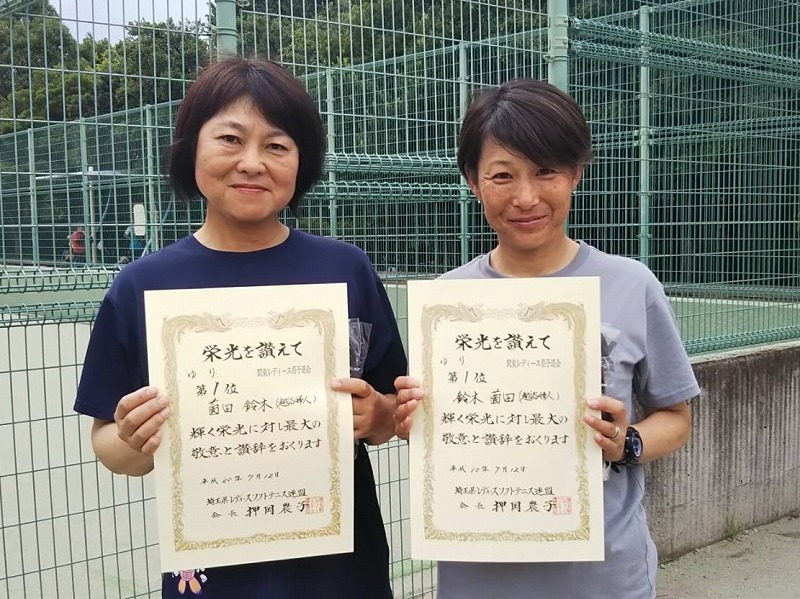 栄光を讃えて
関東レディース県予選会
ゆり
第1位
薗田 鈴木(越谷婦人)
輝く栄光に対し最大の
敬意と讃辞をおくります
平成30年7月12日
埼玉県レディースソフトテニス連盟
会長 押岡農子
栄光を讃えて
関東レディース県予選会
ゆり
第1位
鈴木 薗田(越谷婦人)
輝く栄光に対し最大の
敬意と讃辞をおくります
平成30年7月12日
埼玉県レディースソフトテニス連盟
会長 押岡農子